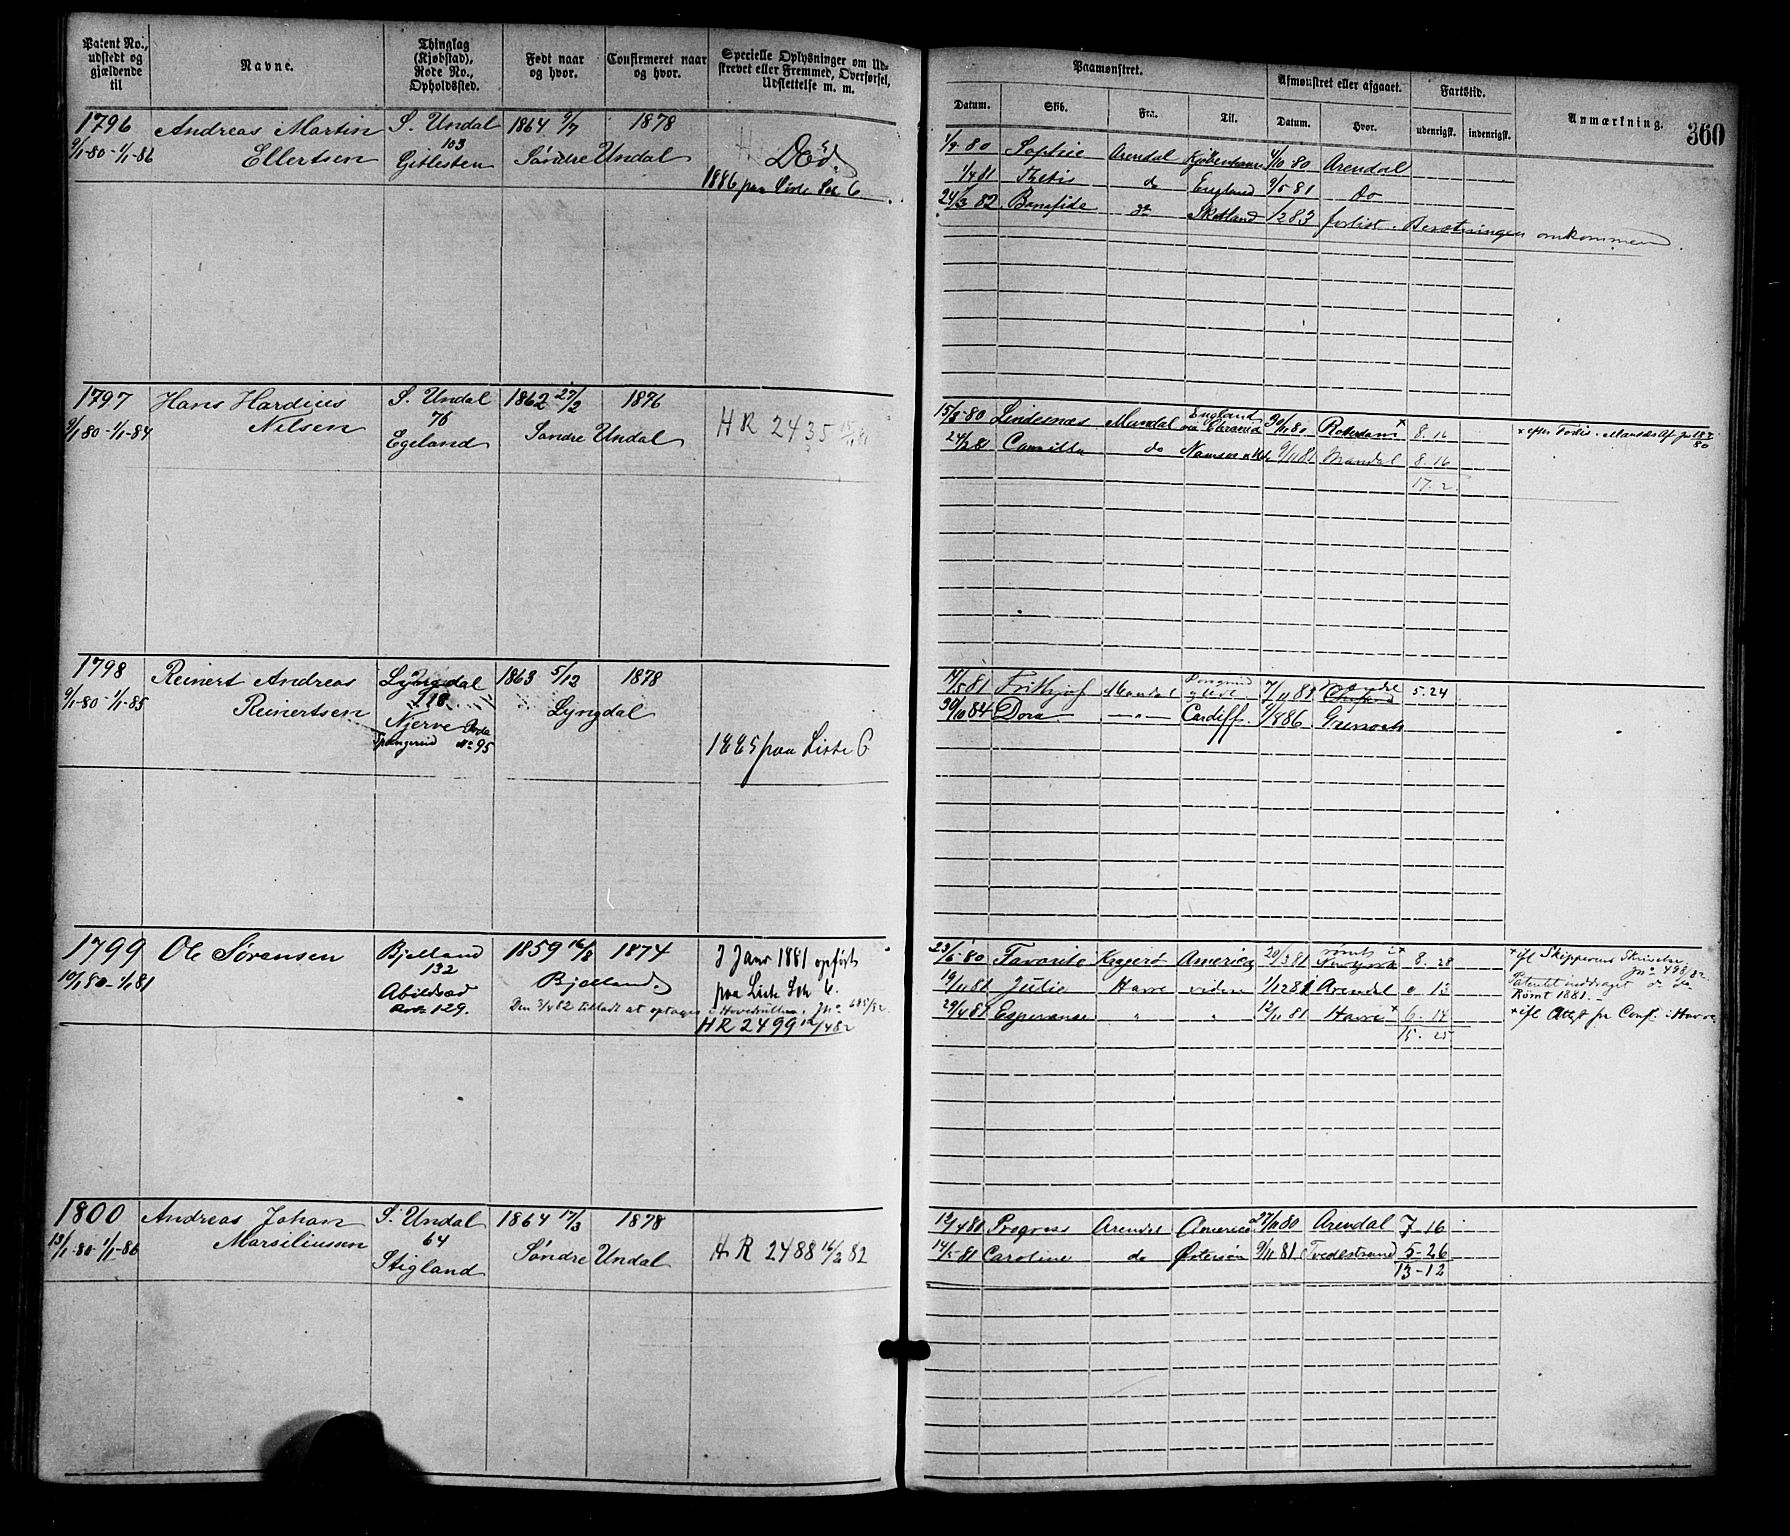 Patent No., udstedt og gjældende til
Navne.
Thinglag (Kjøbstad), Rode No., Opholdssted.
Født naar og hvor.
Confirmeret naar og hvor.
Specielle Oplysninger om Udskrevet eller Fremmed, Overførsel, Udslettelse m. m.
Paamønstret.
Afmønstret eller afgaaet.
Fartstid.
Anmærkning.
360
Datum. Skib. Fra: Til. Datum. Hvor. udenrigsk. indenrigsk.
1796 Andreas Martin S. Undal 1864 9/7 1878
9/1-80-1/1-86 Ellertsen 103 Gitlesten Søndre Undal Død
1886 paa Liste Sok C.
1/9 80 Sophie Arendal Kjøbenhavn 4/10 80 Arendal
1/4 81 Thetis do England 9/5 81 do
24/3 82 Bonafide do Skotland 1/2 83 forlist. Besætningen omkommen.
1797 Hans Hardius S. Undal 1862 27/2 1876
9/1 80-1/1-84 Nilsen 76 Egeland Søndre Undal H R 2435
15/3-80 Lindesnæs Mandal England 30/11 80 Rotterdam x 8. 16
24/2 81 Camilla do 9/11 81 Mandal 8. 16
17. 2
1798 Reinert Andreas Lyngdal 1863 5/12 1878
9/1-80-1/1-85 Reinertsen 118 Njerve Lyngdal
Spangerei No 95
1885 paa Liste C
11/5 81 Frithjof Mandal 7/11 81 5. 24
30/10 84 Dora —"— Cardiff 1/8 86 Greenock
1799 Ole Sørensen Bjelland 1859 16/8 1874 I Janr 1881 opført
10/1 80-1/1 81 132 Bjelland paa Liste Sok C.
129. Den 3/4 82 tilladt at optages i Hovedrullen. Jn° 685/82.
HR 2499 12/4 82
23/6-80 Favorite Kragerø America 20/3 81 rømt i x 8. 28 x ifl Skipperens Skrivelse
Jn° 498/82.
19/11 81 Julie Havre viden 1/12 81 Arendal 0 13 Patentet inddraget
Rømt 1881.
29/4 81 Esperance " " 12/11 81 Havre x 6. 14 x ifl Attest fra Cons. i Havre
15. 25
1800 Andreas Johan S. Undal 1864 17/3 1878
13/1-80-1/1-86 Marsiliussen 64 Stigland Søndre Undal H R 2488 16/2 82
12/4 80 Progress Arendal America 27/11 80 Arendal 7 16
14/5-81 Caroline do Østersøn 9/11 81 Tvedestrand 5-26
13-12